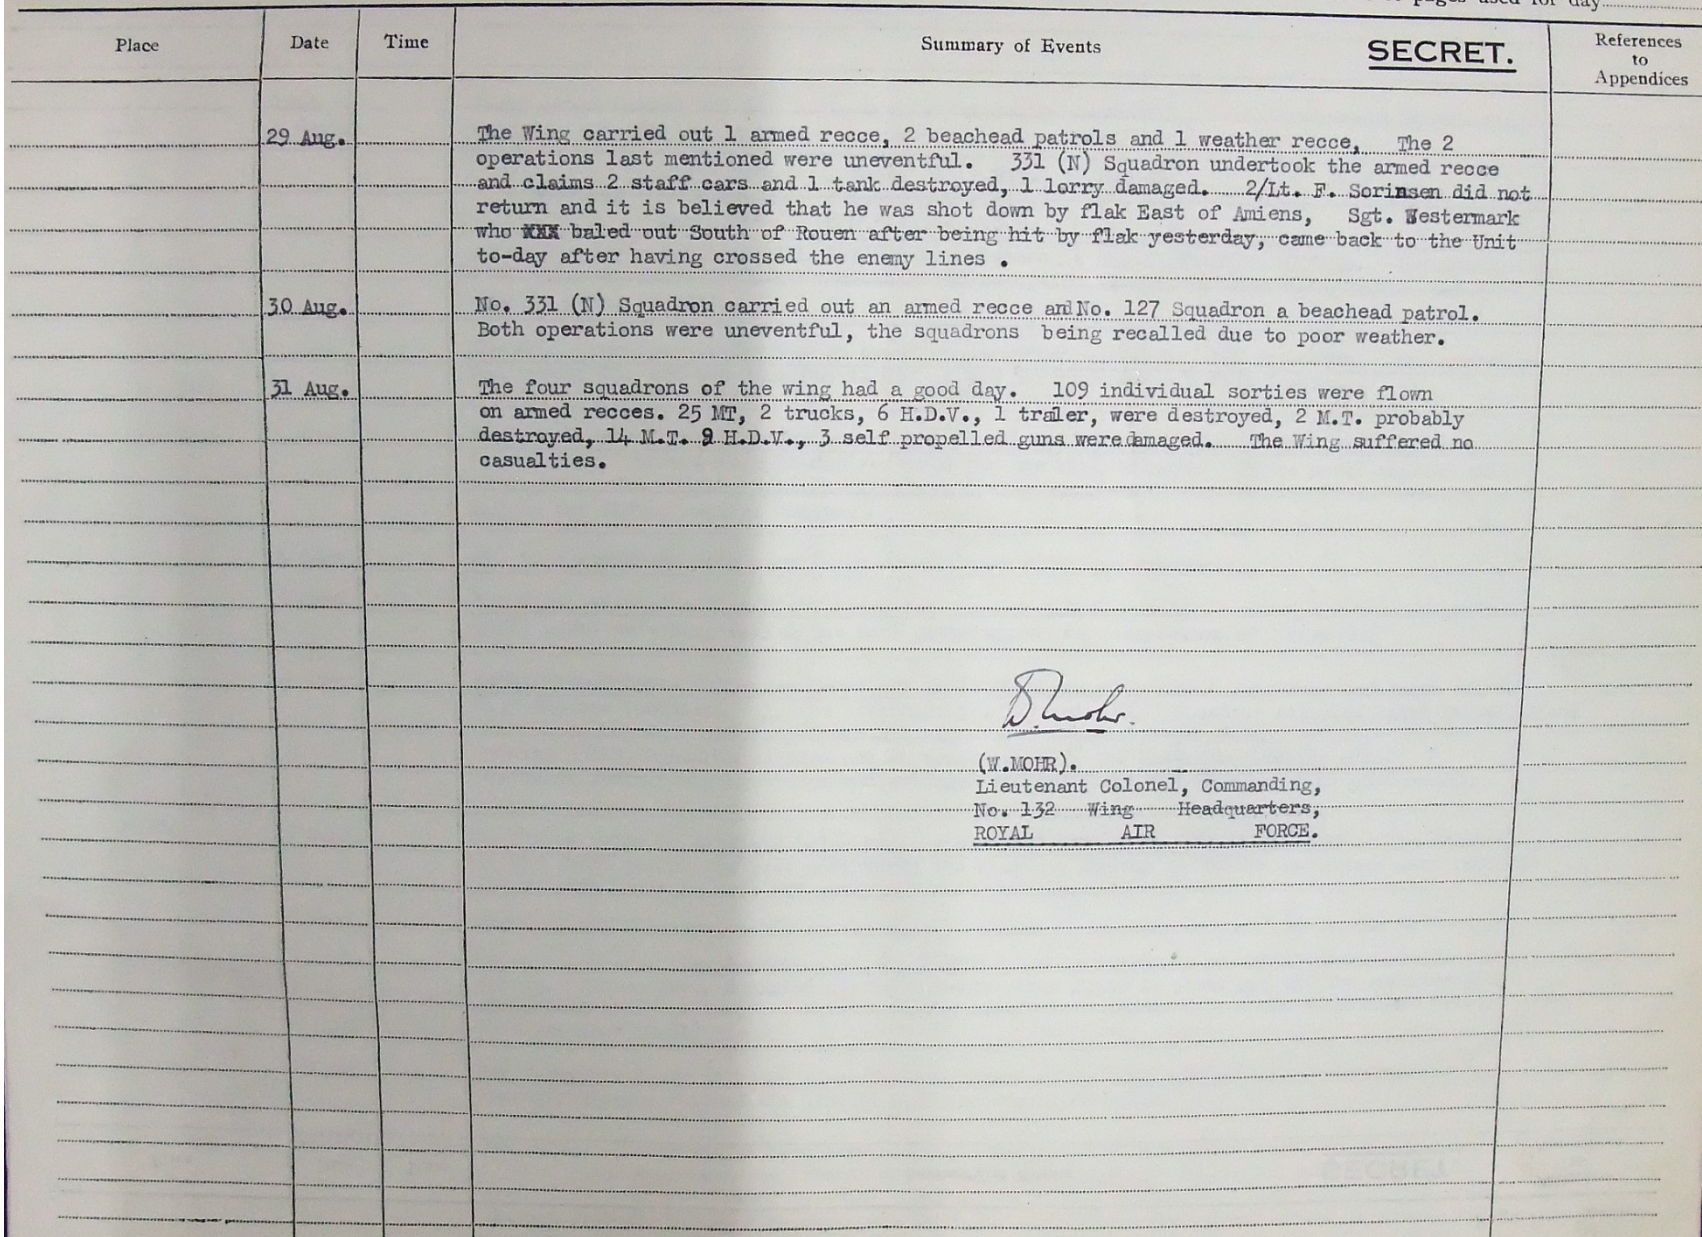 pages used for day
Place Date Time Summary of Events SECRET. References
to
Appendices
29 Aug. The Wing carried out 1 armed recce, 2 beachead patrols and 1 weather recce, The 2
operations last mentioned were uneventful. 331 (N) Squadron undertook the armed recce
and claims 2 staff cars and 1 tank destroyed, 1 lorry damaged. 2/Lt. F. Sorinsen did not
return and it is believed that he was shot down by flak East of Amiens, Sgt. Westermark
who XXX baled out South of Rouen after being hit by flak yesterday, came back to the Unit
to-day after having crossed the enemy lines .
30 Aug. No. 331 (N) Squadron carried out an armed recce and No. 127 Squadron a beachead patrol.
Both operations were uneventful, the squadrons being recalled due to poor weather.
31 Aug. The four squadrons of the wing had a good day. 109 individual sorties were flown
on armed recces. 25 MT, 2 trucks, 6 H.D.V., 1 traler, were destroyed, 2 M.T. probably
destroyed, 14 M.T. 9 H.D.V., 3 self propelled guns were damaged. The Wing suffered no
casualties.
(W.MOHR).
Lieutenant Colonel, Commanding,
No. 132 Wing Headquarters,
ROYAL AIR FORCE.